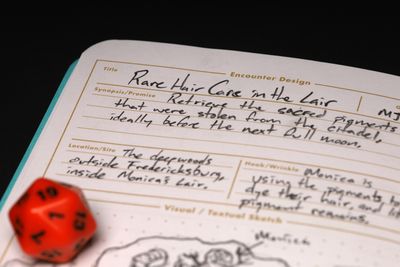 Encounter Design
Title
Rare Hair Care in the Lair
MJ
Synopsis/Premise
Retrieve the sacred pigments
that were stolen from the citadel,
ideally before the next full moon.
Location/Site
The deepwoods
outside Fredericksburg,
inside Monica's Lair.
Hook/Wrinkle
Monica is
using the pigments to
dye their hair, and
pigment remains.
Visual / Textual Sketch
Monica
19
1
7